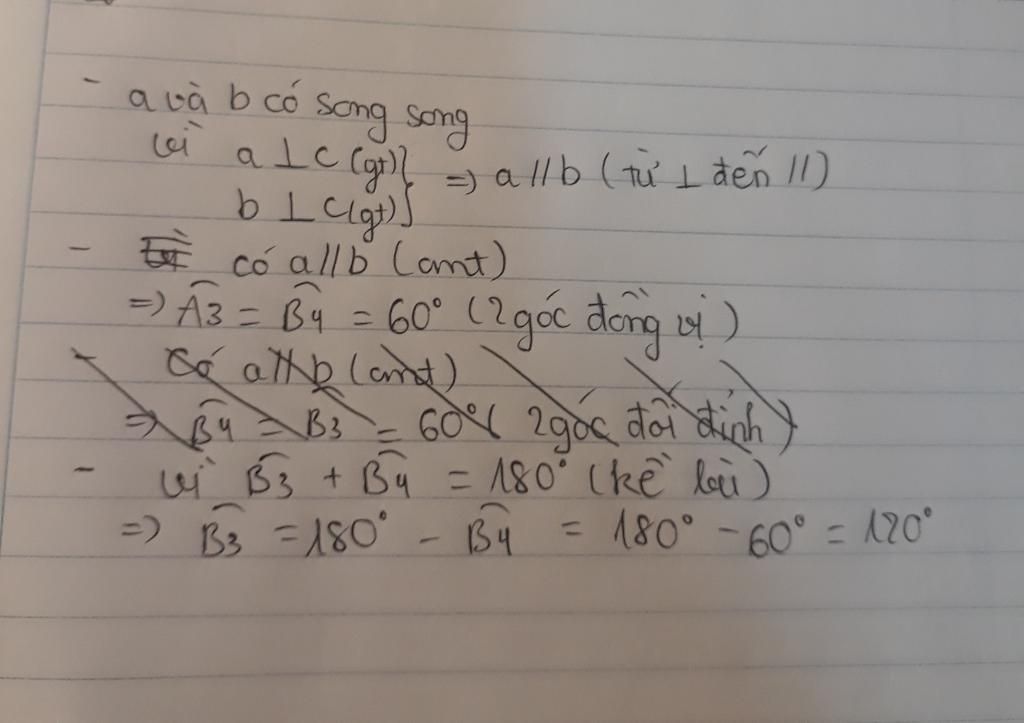 - a và b có song song
vì a ⊥ c (gt)} => a // b (từ ⊥ đến //)
b ⊥ c (gt)}
- có a // b (cmt)
=> Â3 = B̂4 = 60° (2 góc đồng vị)
Có a // b (cmt)
=> B̂4 = B̂3 = 60° (2 góc đối đỉnh)
- vì B̂3 + B̂4 = 180° (kề bù)
=> B̂3 = 180° - B̂4 = 180° - 60° = 120°